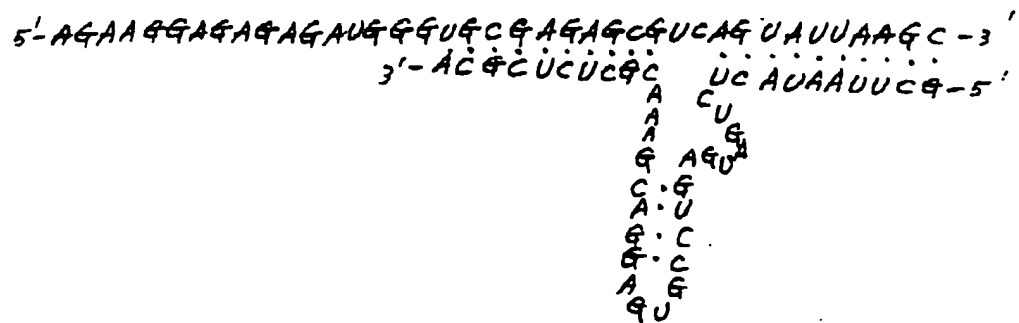 5'-AGAAGGAGAGAGAUGGGUGCGAGAGCGUCAGUAUUAAGC-3'
3'-ACGCUCUCGC UCAUAAUUCG-5'
A C
A U
A G
G AGUA
C·G
A·U
G·C
G·C
A G
GU